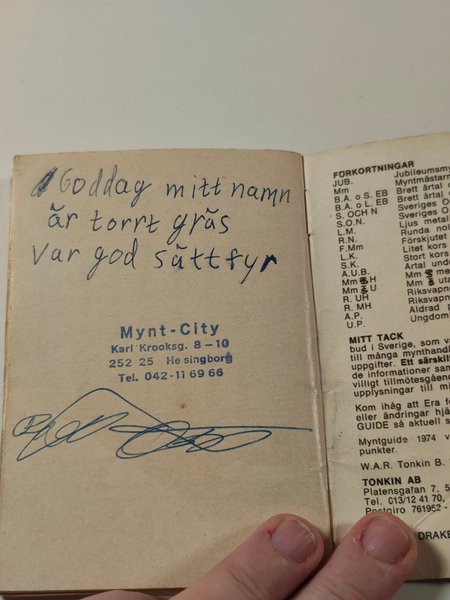 Goddag mitt namn
är torrt gräs
Var god sätt fyr
Mynt-City
Karl Krooksg. 8 - 10
252 25 Helsingborg
Tel. 042-11 69 66
FÖRKORTNINGAR
JUB. Jubileumsmy
Mm Myntmästarm
B.Å. o S. EB Brett årtal o
B.Å. o L. EB Brett årtal o
S. OCH N Sveriges O
S.O.N. Sveriges O
L.M. Ljus metal
R.N. Runda nol
F.Mm Förskjutet
L.K. Litet kors
S.K. Stort kors
Å.U.B. Årtal unde
Mm H Mm me
Mm U Mm uta
R. UH Riksvapne
R. MH Riksvapne
A.P. Äldrad
U.P. Ungdom
MITT TACK
bud i Sverige, som v
till många mynthandl
uppgifter. Ett särskil
de informationer sam
villigt tillmötesgåen
upplysningar till mi
Kom ihåg att Era f
eller ändringar hjä
GUIDE så aktuell s
Myntguide 1974 v
punkter.
W.A.R. Tonkin B.
TONKIN AB
Platensgatan 7, 5
Tel. 013/12 41 70,
Postgiro 761952 -
DRAKE